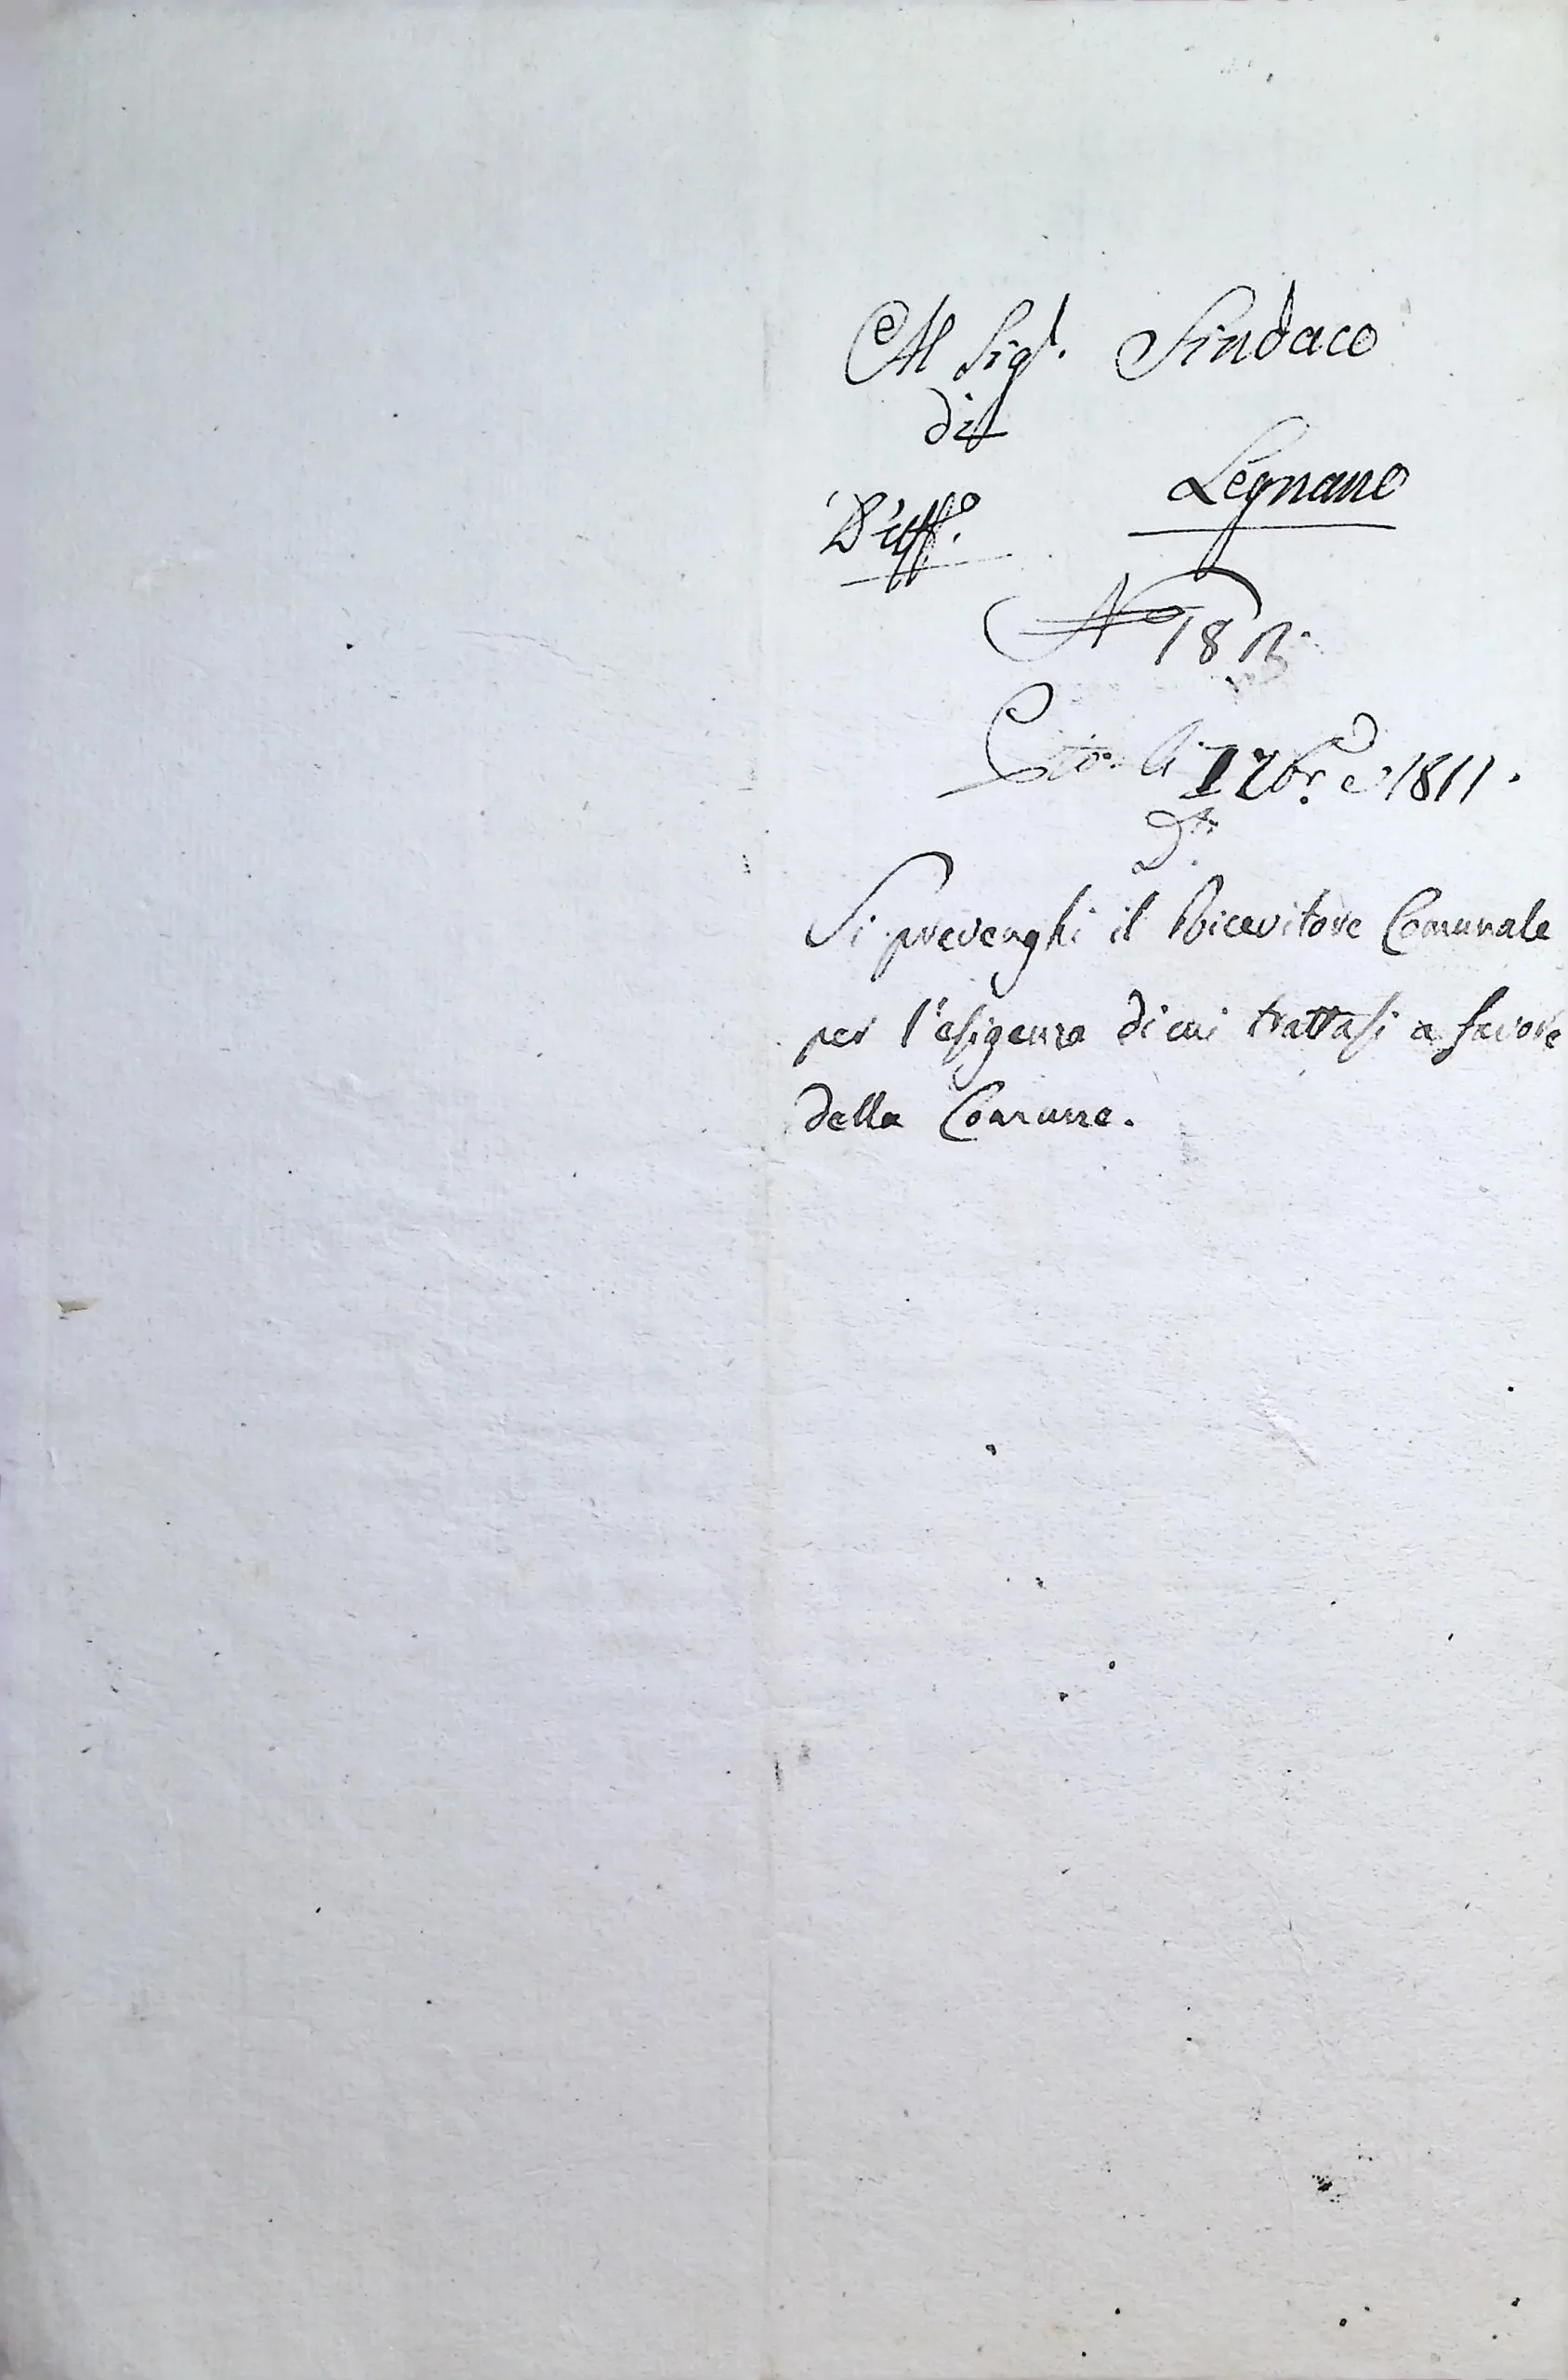 Al Sigr. Sindaco
di
Legnano
D'uff.o
N.o 18
li 1 7br.e 1811.
Si prevenghi il Ricevitore Comunale
per l'esigenza di cui trattasi a favore
della Comune.